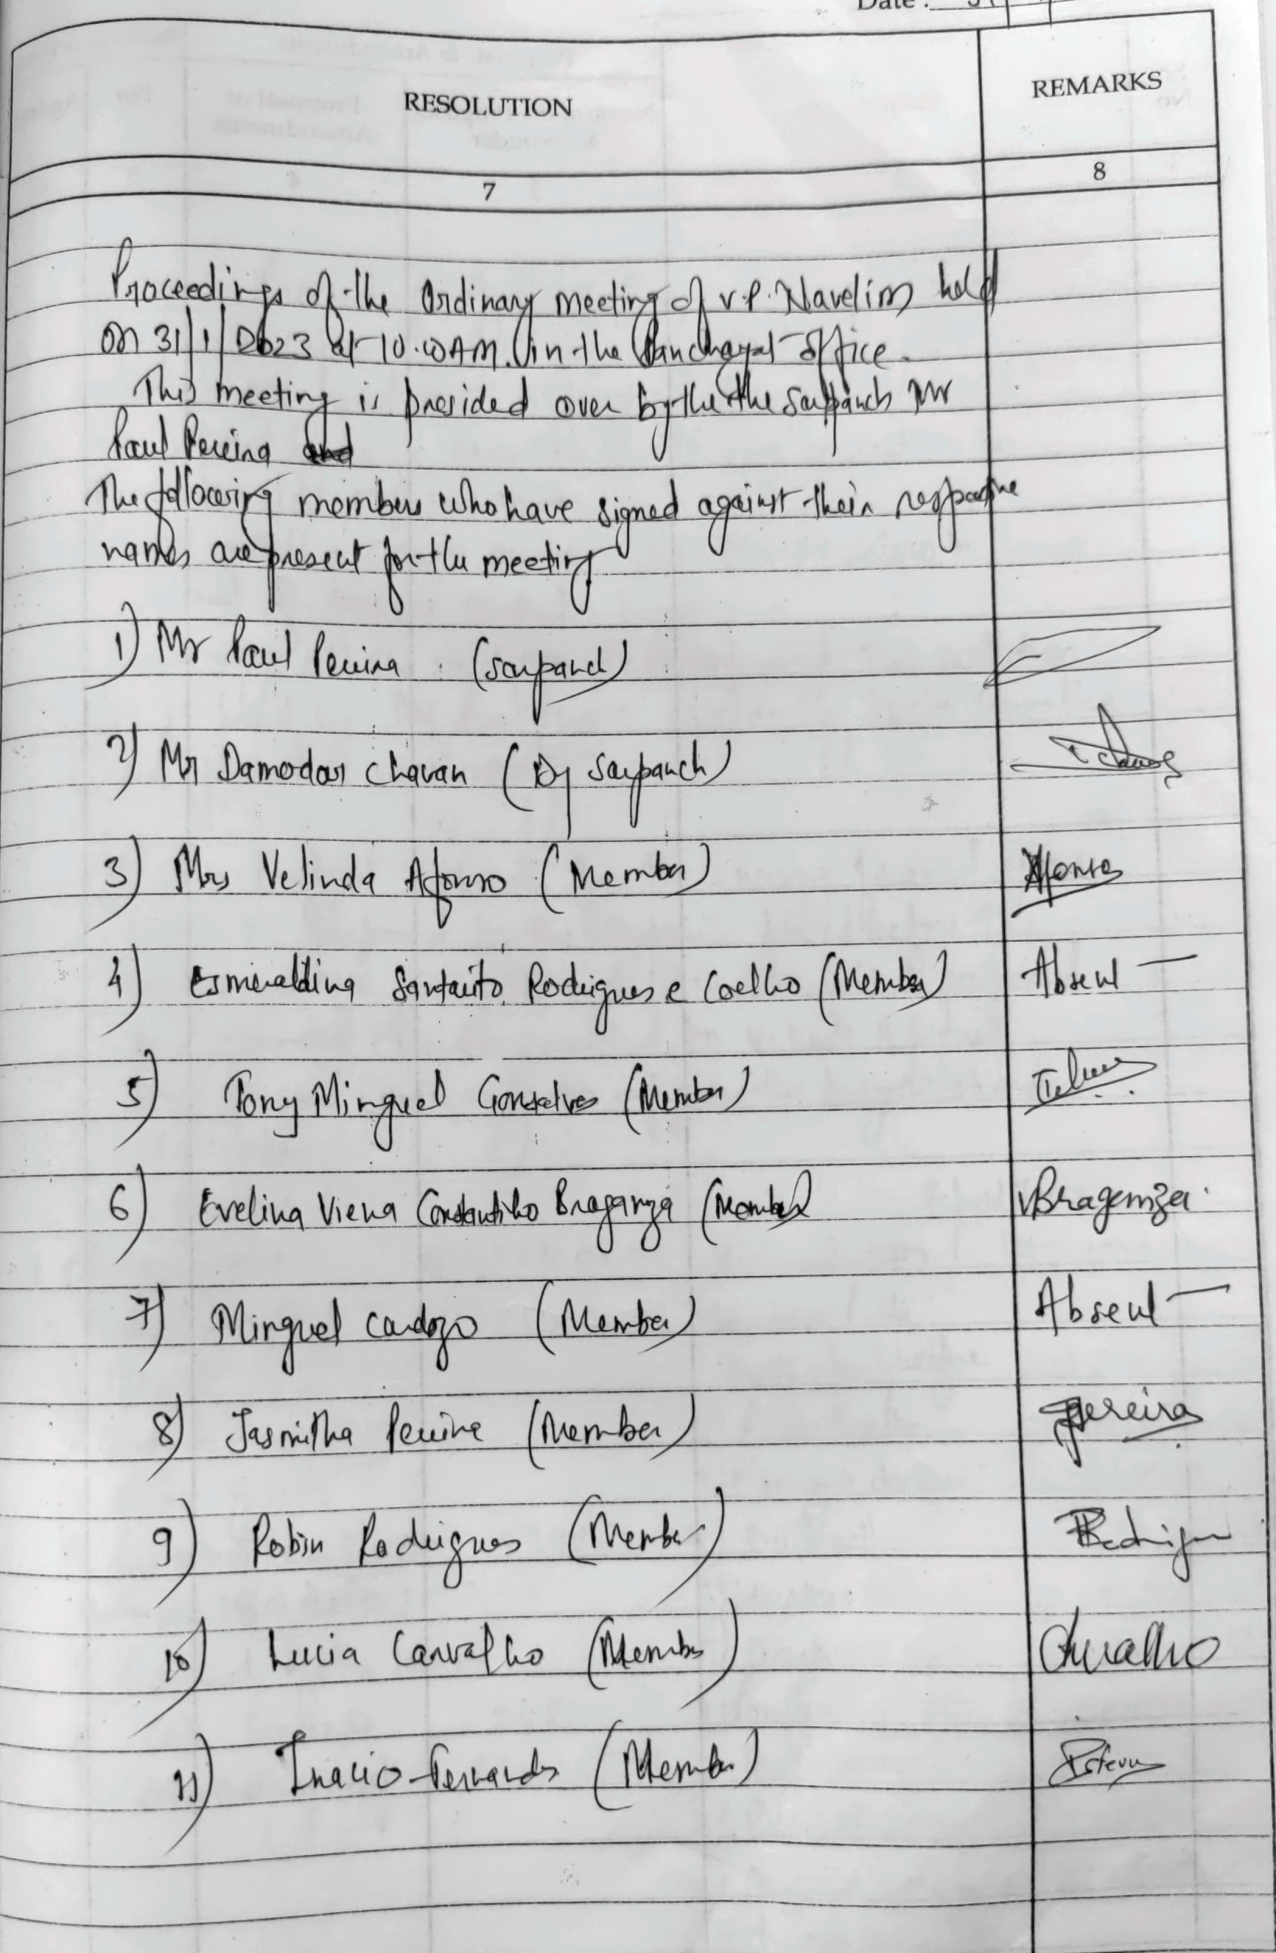 Date : 31
RESOLUTION
REMARKS
7
8
Proceedings of the Ordinary meeting of V.P. Navelim held
on 31/1/2023 at 10.00AM. in the Panchayat office.
This meeting is presided over by the the Sarpanch Mr
Paul Pereira and
The following members who have signed against their respective
names are present for the meeting
1) Mr Paul Pereira . (Sarpanch)
2) Mr Damodar Chavan (Dy Sarpanch)
3) Mrs Velinda Afonso (Member) Afonso
4) Esmeraldina Santarito Rodrigues e Coelho (Member) Absent —
5) Tony Minguel Gonsalves (Member)
6) Evelina Viena Constantinho Braganza (Member) VBraganza
7) Minguel Cardozo (Member) Absent —
8) Jasmitha Pereira (Member) JPereira
9) Robin Rodrigues (Member) RRodrigu
10) Lucia Carvalho (Member) Carvalho
11) Inacio Fernandes (Member)